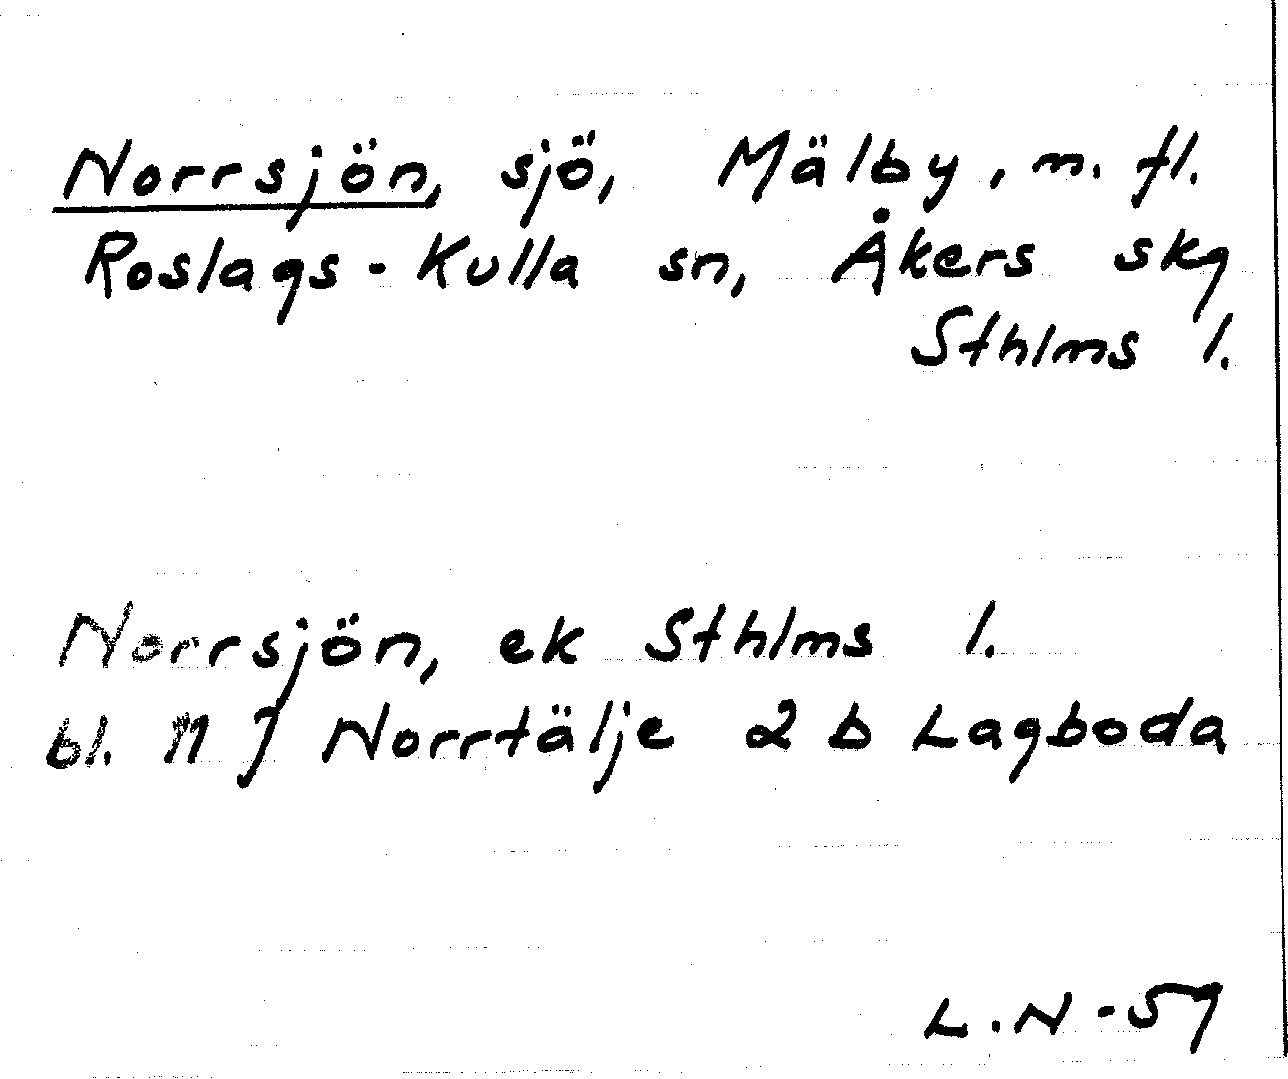 Norrsjön, sjö, Mälby, m. fl.
Roslags-Kulla sn, Åkers skg
Sthlms l.
Norrsjön, ek Sthlms l.
bl. 11 J Norrtälje 2 b Lagboda
L.N-57